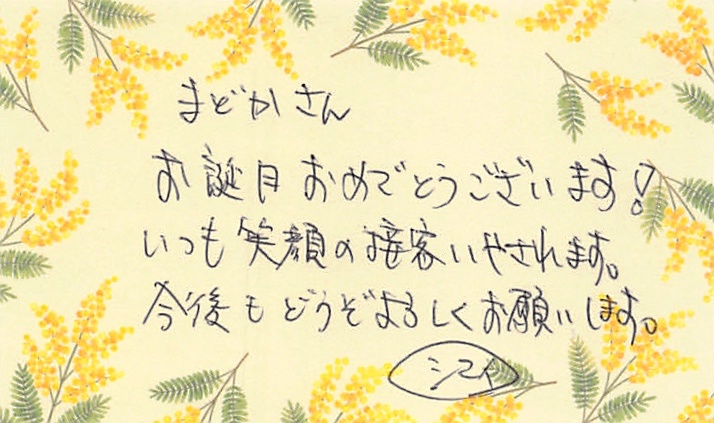 まどかさん
お誕日おめでとうございます!
いつも笑顔の接客いやされます。
今後もどうぞよろしくお願いします。